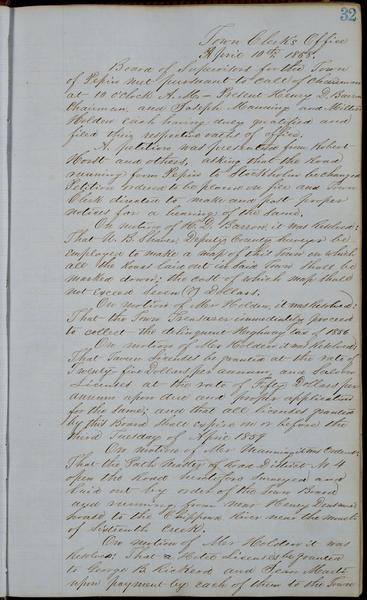 32
Town Clerk's Office
April 10th, 1858.
Board of Supervisors for the Town
of Pepin met pursuant to call of Chairman
at 10 o'clock A.M. - Present Henry D. Barron
Chairman and Joseph Manning and Milton
Holden each having duly qualified and
filed their respective oaths of office.
A petition was presented from Robert
and others, asking that the Road
running from Pepin to Stockholm be changed
Petition ordered to be placed on file and Town
Clerk directed to make and post proper
notices for a hearing of the same.
On motion of H. D. Barron it was Resolved:
That U. B. Shaver, Deputy County Surveyor be
employed to make a map of this Town on which
all the Roads laid out in said Town shall be
marked down; the cost of which map shall
not exceed seven (7) Dollars.
On motion of Mr Holden, it was Resolved:
That the Town Treasurer immediately proceed
to collect the delinquent Highway tax of 1856
On motion of Mr Holden it was Resolved,
That Tavern Licenses be granted at the rate of
Twenty-five Dollars per annum, and Saloon
Licenses at the rate of Fifty Dollars per
annum upon due and proper application
for the same; and that all licenses granted
by this Board shall expire on or before the
third Tuesday of April 1859
On motion of Mr Manning it was Ordered:
That the Path Master of Road District No 4
open the Road heretofore Surveyed and
laid out by order of the Town Board
and running from near Henry
house to the Chippewa River near the mouth
of Sixteenth Creek.
On motion of Mr Holden it was
Resolved: That a Hotel License be granted
to George B. and
upon payment by each of them to the Town